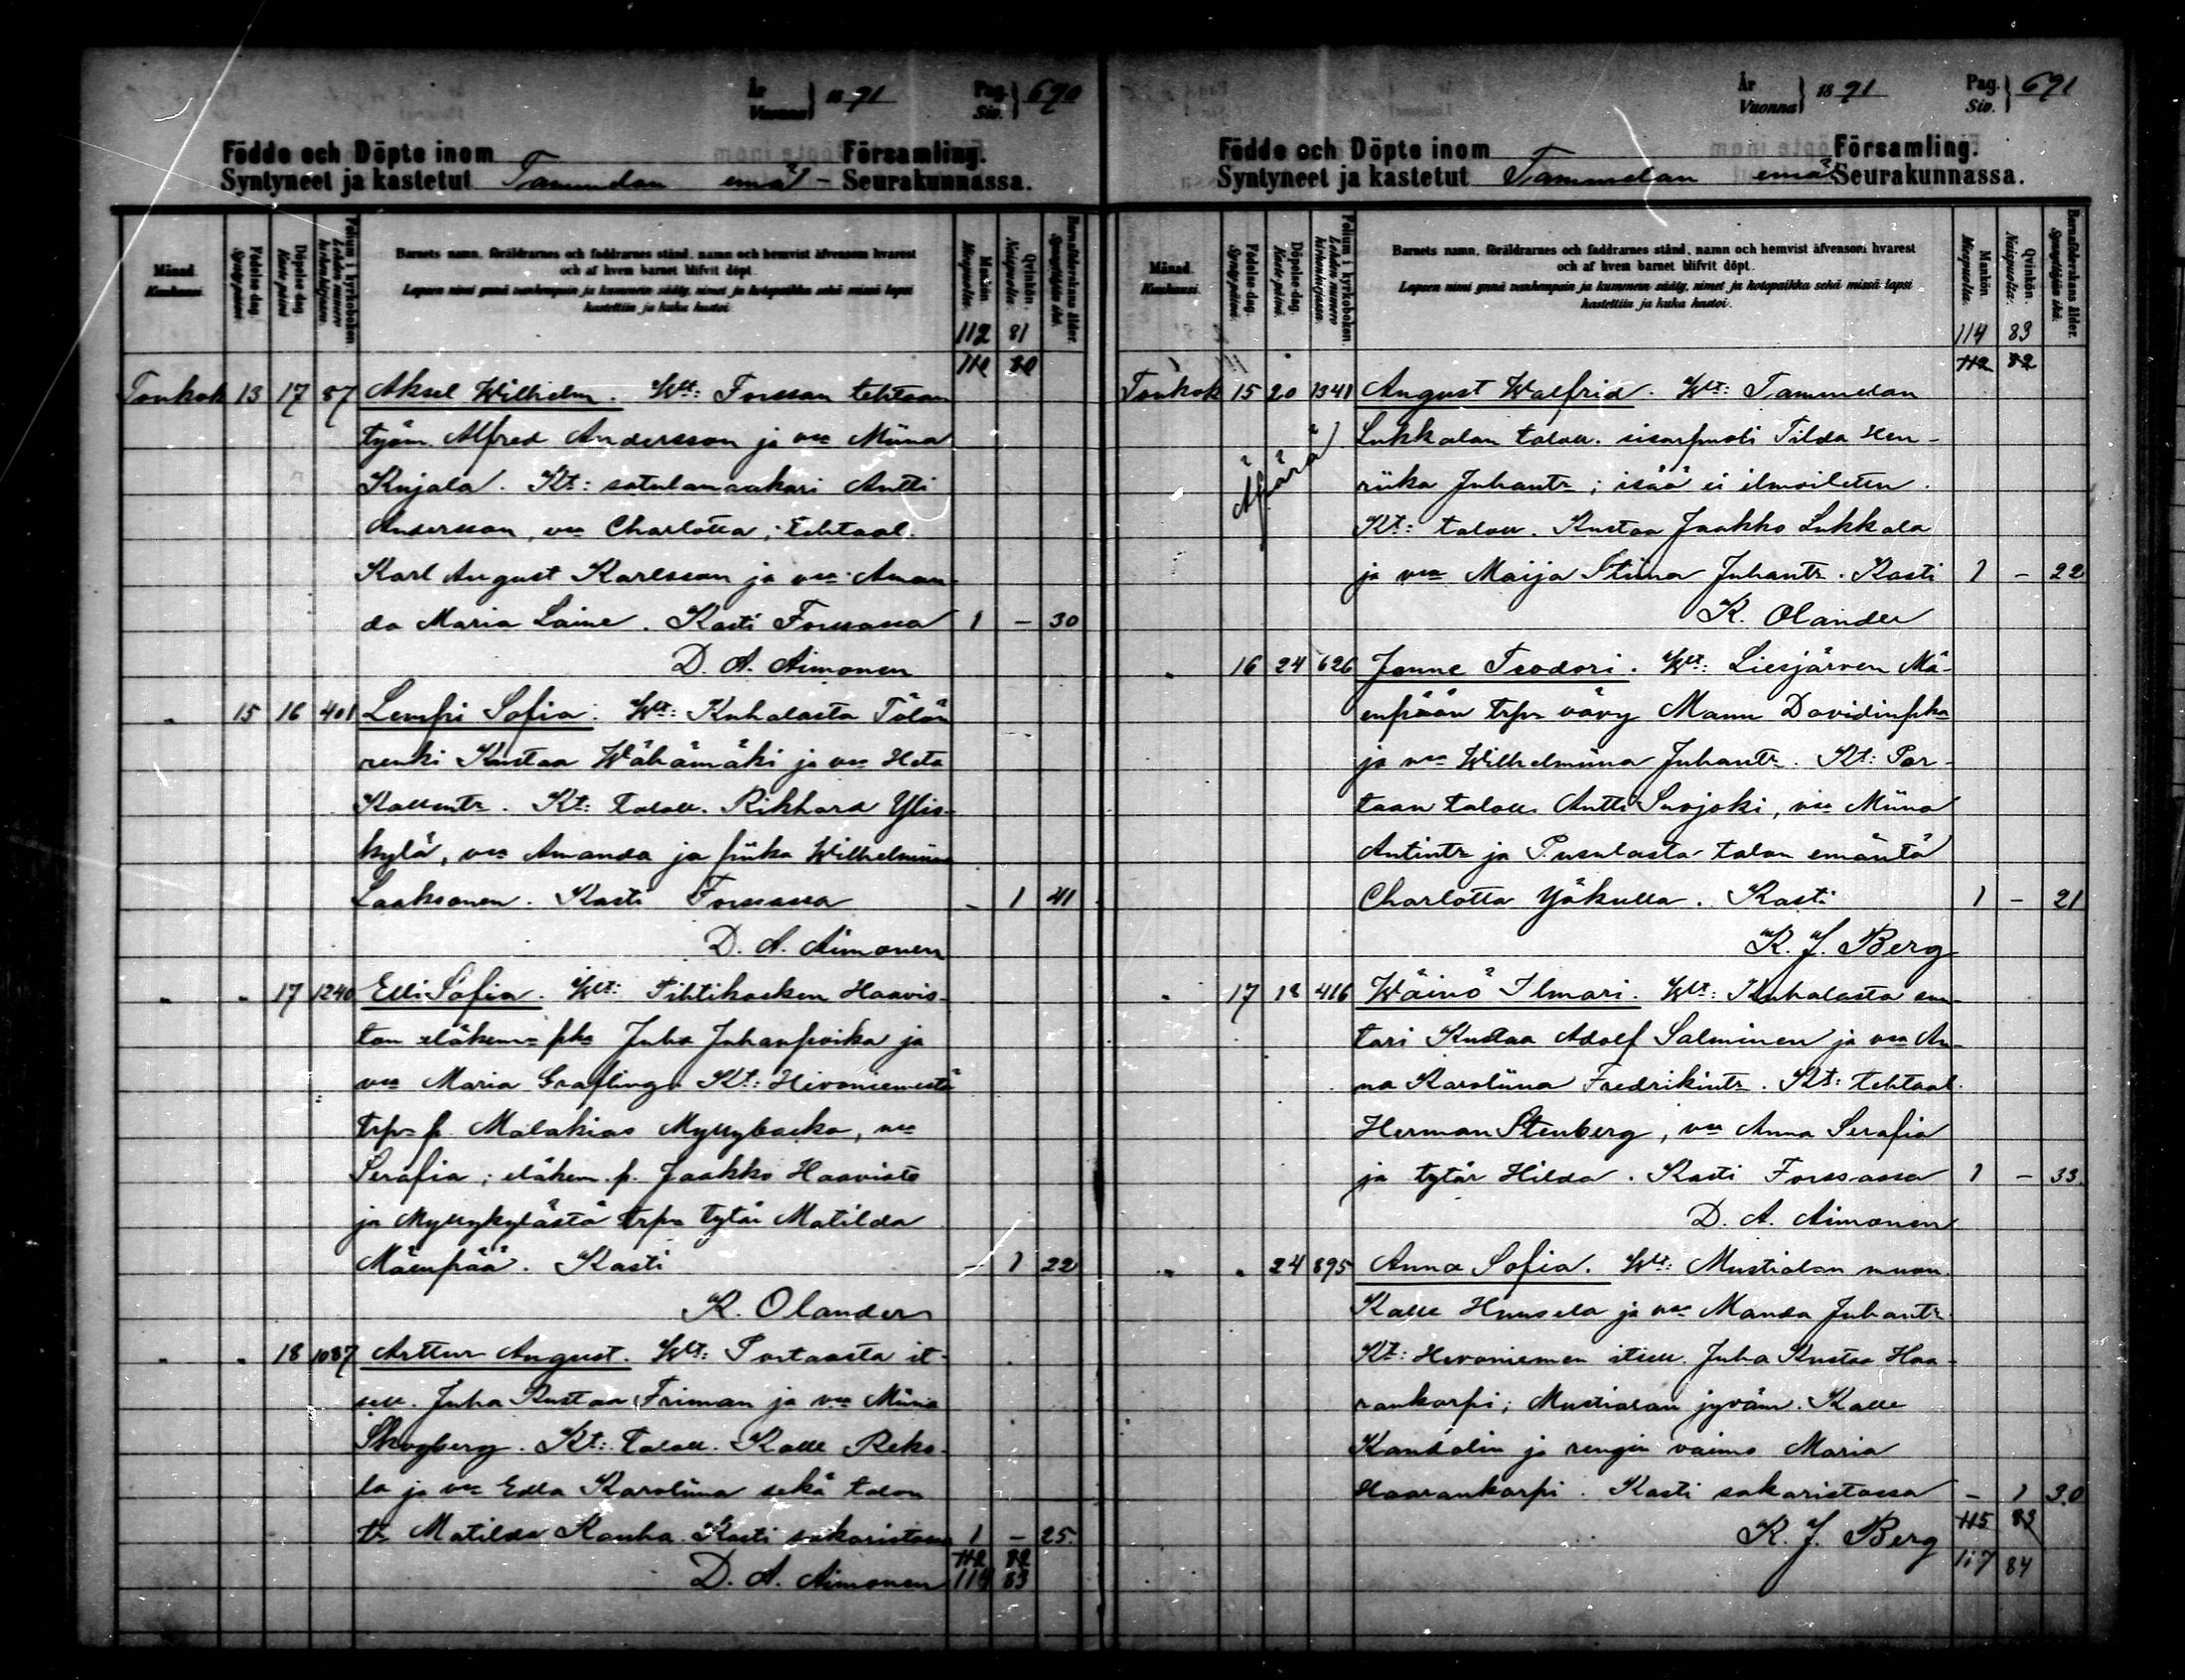 År
Vuonna } 1891 Pag. Siv. } 690
Födde och Döpte inom Församling.
Syntyneet ja kastetut Tammelan emä- Seurakunnassa.
Månad. Kuukausi.
Födelse dag. Syntypäivä.
Döpelse dag. Kaste päivä.
Folium i kyrkoboken Lehden numero kirkonkirjassa.
Barnets namn, föräldrarnes och faddrarnes stånd, namn och hemvist äfvensom hvarest
och af hvem barnet blifvit döpt.
Lapsen nimi ynnä vanhempain ja kummein sääty, nimet ja kotopaikka sekä missä lapsi
kastettiin ja kuka kastoi.
Mankön. Miespuolta.
Qvinkön. Naispuolta.
Barnaföderskans ålder. Synnyttäjän ikä.
112 81
110 80
Toukok 13 17 87 Aksel Wilhelm. Wt: Forssan tehtaan
työm. Alfred Andersson ja vmo Miina
Kujala. Kt: satulamaakari Antti
Andersson, vmo Charlotta; tehtaal.
Karl August Karlsson ja vmo Aman-
da Maria Laine. Kasti Forssassa 1 - 30
D. A. Aimonen
" 15 16 401 Lempi Sofia. Wt: Kuhalasta Tölön
renki Kustaa Wähämäki ja vmo Heta
Kallentr. Kt: taloll. Rikhard Ylis-
kylä, vmo Amanda ja piika Wilhelmiina
Laaksonen. Kasti Forssassa - 1 41
D. A. Aimonen
" " 17 1240 Elli Sofia. Wt: Pihtikosken Haavis-
ton eläkem. pka Juha Juhanpoika ja
vmo Maria Grafling. Kt: Hivoniemestä
trp. p. Malakias Myllybacka, vmo
Serafia; eläkem. p. Jaakko Haavisto
ja Myllykylästä trp. tytär Matilda
Mäenpää. Kasti - 1 22
K. Olander
" " 18 1087 Arttur August. Wt: Portaasta it-
sell. Juha Kustaa Friman ja vmo Miina
Skogberg. Kt: taloll. Kalle Reko-
la ja vmo Edla Karoliina sekä talon
tr. Matilda Kauha. Kasti sakaristossa 1 - 25.
112 82
D. A. Aimonen 114 83
År
Vuonna } 1891 Pag. Siv. } 691
Födde och Döpte inom Församling.
Syntyneet ja kastetut Tammelan emä Seurakunnassa.
Månad. Kuukausi.
Födelse dag. Syntypäivä.
Döpelse dag. Kaste päivä.
Folium i kyrkoboken. Lehden numero kirkonkirjassa.
Barnets namn, föräldrarnes och faddrarnes stånd, namn och hemvist äfvensom hvarest
och af hvem barnet blifvit döpt.
Lapsen nimi ynnä vanhempain ja kummein sääty, nimet ja kotopaikka sekä missä lapsi
kastettiin ja kuka kastoi.
Mankön. Miespuolta.
Qvinkön. Naispuolta.
Barnaföderskans ålder. Synnyttäjän ikä.
114 83
112 82
Toukok 15 20 1341 August Walfrid. Wt: Tammelan
(Äpärä) Lukkalan taloll. sisarpuoli Tilda Hen-
riika Juhantr; isää ei ilmoitettu.
Kt: taloll. Kustaa Jaakko Lukkala
ja vmo Maija Stiina Juhantr. Kasti 1 - 22
K. Olander
" 16 24 626 Janne Teodori. Wt: Liesjärven Mä-
enpään trp. vävy Manu Davidinpka
ja vmo Wilhelmiina Juhantr. Kt: Por-
taan taloll. Antti Suojoki, vmo Miina
Antintr ja Pusulasta talon emäntä
Charlotta Yökulla. Kasti 1 - 21
K. J. Berg
" 17 18 416 Wäinö Ilmari. Wt: Kuhalasta suu-
tari Kustaa Adolf Salminen ja vmo An-
na Karoliina Fredrikintr. Kt: tehtaal.
Herman Stenberg, vmo Anna Serafia
ja tytär Hilda. Kasti Forssassa 1 - 33.
D. A. Aimonen
" " 24 895 Anna Sofia. Wt: Mustialan muon.
Kalle Huusela ja vmo Manda Juhantr.
Kt: Hevoniemen itsell. Juha Kustaa Haa-
rankorpi; Mustialan jyväm. Kalle
Kandolin ja rengin vaimo Maria
Haarankorpi. Kasti sakaristossa - 1 30
115 83
K. J. Berg 117 84